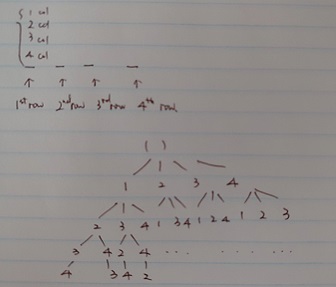 { 1 col
2 col
3 col
4 col
1st row 2nd row 3rd row 4th row
( )
1 2 3 4
2 3 4 1 3 4 1 2 4 1 2 3
3 4 2 4 . . . . . . . . .
4 3 4 2